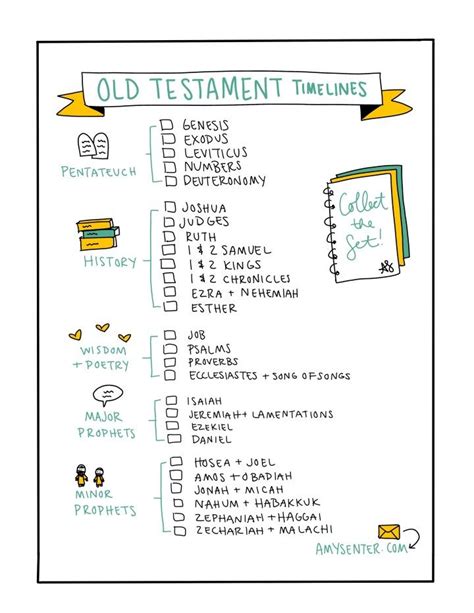 OLD TESTAMENT TIMELINES
PENTATEUCH
GENESIS
EXODUS
LEVITICUS
NUMBERS
DEUTERONOMY
HISTORY
JOSHUA
JUDGES
RUTH
1 & 2 SAMUEL
1 & 2 KINGS
1 & 2 CHRONICLES
EZRA + NEHEMIAH
ESTHER
Collect
the
Set!
AS
WISDOM
+ POETRY
JOB
PSALMS
PROVERBS
ECCLESIASTES + SONG OF SONGS
MAJOR
PROPHETS
ISAIAH
JEREMIAH + LAMENTATIONS
EZEKIEL
DANIEL
MINOR
PROPHETS
HOSEA + JOEL
AMOS + OBADIAH
JONAH + MICAH
NAHUM + HABAKKUK
ZEPHANIAH + HAGGAI
ZECHARIAH + MALACHI
AMYSENTER.COM